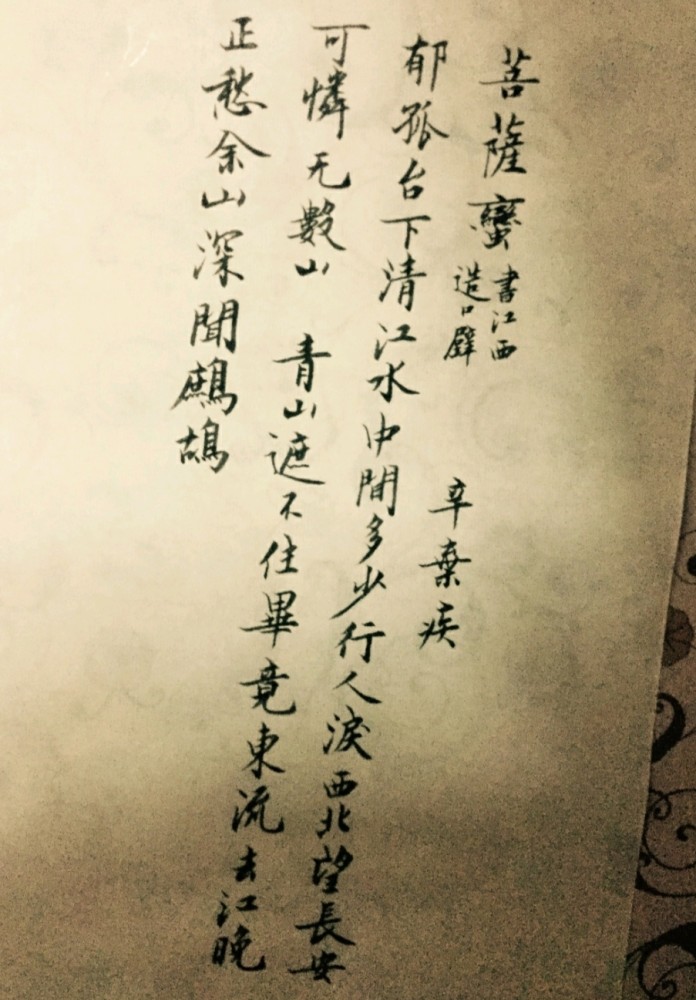 菩薩蠻
書江西
造口壁
辛棄疾
郁孤台下清江水中間多少行人淚西北望長安
可憐无數山 青山遮不住畢竟東流去江晚
正愁余山深聞鷓鴣